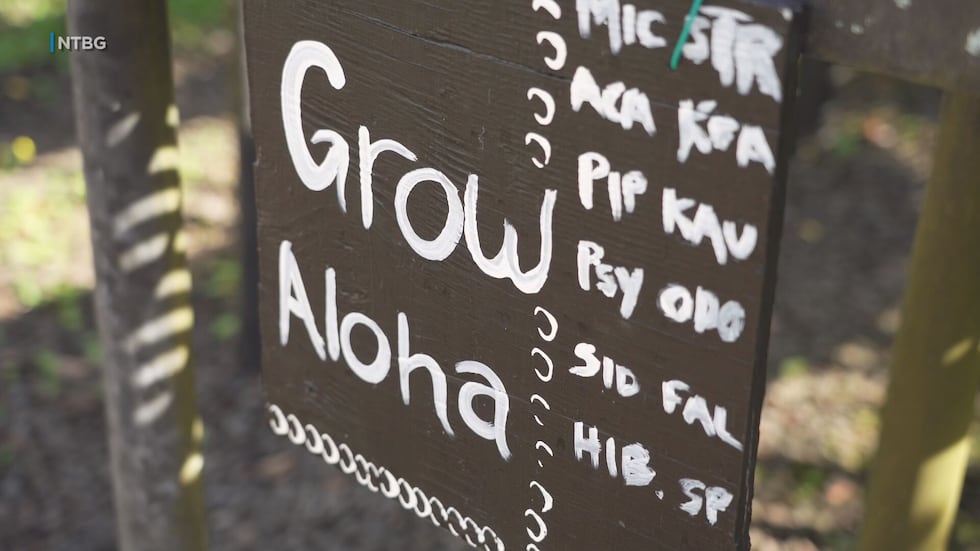 NTBG
Grow
Aloha
Mic STR
ACA KEA
Pip KAU
Psy ODO
SID FAL
HIB. SP